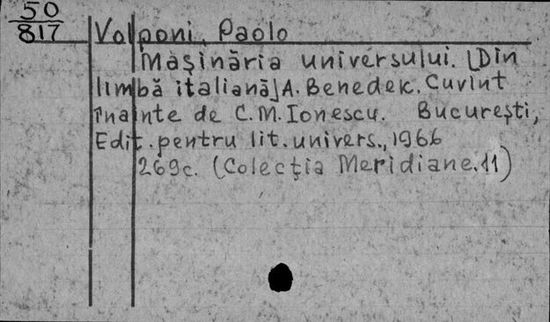 50
817
Volponi, Paolo
Maşinăria universului. [Din
limbă italiană] A. Benedek. Cuvînt
înainte de C.M. Ionescu. Bucureşti,
Edit. pentru lit. univers., 1966
269c. (Colecţia Meridiane. 11)